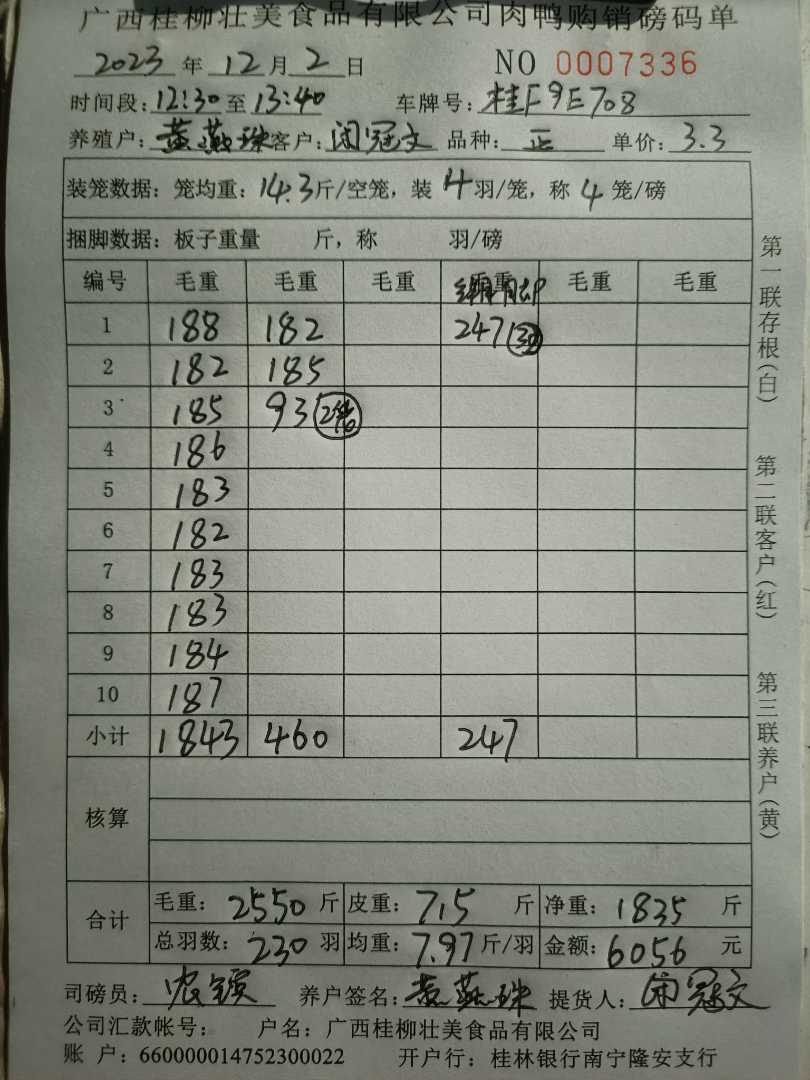 广西桂柳壮美食品有限公司肉鸭购销磅码单
2023 年 12 月 2 日 NO 0007336
时间段: 12:30 至 13:40 车牌号: 桂F9E708
养殖户: 黄燕珠 客户: 闭冠文 品种: 正 单价: 3.3
装笼数据: 笼均重: 14.3 斤/空笼, 装 4 羽/笼, 称 4 笼/磅
捆脚数据: 板子重量 斤, 称 羽/磅
编号 毛重 毛重 毛重 毛重 毛重 毛重
1 188 182 247
2 182 185
3 185 93 2笼
4 186
5 183
6 182
7 183
8 183
9 184
10 187
小计 1843 460 247
核算
合计 毛重: 2550 斤 皮重: 715 斤 净重: 1835 斤
总羽数: 230 羽 均重: 7.97 斤/羽 金额: 6056 元
司磅员: 养户签名: 黄燕珠 提货人: 闭冠文
公司汇款帐号: 户名: 广西桂柳壮美食品有限公司
账 户: 660000014752300022 开户行: 桂林银行南宁隆安支行
第一联存根(白)
第二联客户(红)
第三联养户(黄)